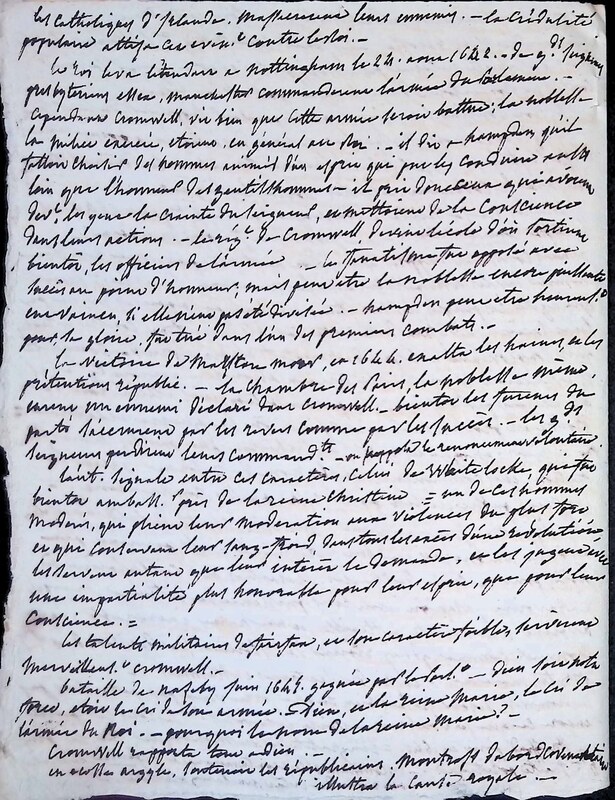 les catholiques d'Irlande, massacrerent leurs ennemis. - la crédulité
populaire attisa ces évén.ts contre le roi. -
le roi leva l'étendart a Nottingham le 24. aoust 1642. - de gds seigneurs
presbyteriens essex, manchester commanderent l'armée du parlement. -
cependant Cromwell, vit bien que cette armée seroit battue; la noblesse
la milice exercée, étoient, en général au Roi. - il dit a hampden qu'il
falloit choisir des hommes animés d'un esprit qui put les conduire aussi
loin que l'honneur des gentilshommes - il prit donc ceux qui avoient
devt les yeux la crainte du seigneur, et mettoient de la Conscience
dans leurs actions. - le régt de Cromwell devint l'école d'où sortirent
bientot, les officiers de l'armée - le fanatisme fut opposé avec
succès au point d'honneur, mais peut etre la noblesse encore puissante
eut vaincu, si elle n'eut pas été divisée. - hampden peut etre heureust
pour sa gloire, fut tué dans l'un des premiers combats. -
la victoire de Marston moor, en 1644. exalta les haines, et les
prétentions républic. - la chambre des Pairs, la noblesse même,
eurent un ennemi déclaré dans Cromwell. - bientot les fureurs du
parti s'accrurent par les revers comme par les succès. - les gds
seigneurs perdirent leurs commandts - on supposa le renoncement volontaire
l'aut. signale entre ces caractères, celui de Whitelocke, qui fut
bientot ambass.r près de la reine Christine = un de ces hommes
modérés, que plient leur modération aux violences du plus fort
et qui conservant leur sang-froid, dans tous les excès d'une révolution
les servent autant que leur intérêt le demande, et les jugent avec
une impartialité plus honorable pour leur esprit, que pour leur
Conscience. =
les talents militaires de fairfax, et son caractère foible, servirent
merveilleust Cromwell. -
bataille de naseby juin 1645. gagnée par le parl.t - Dieu soit notre
force, étoit le cri de son armée. = Dieu, et la reine Marie, le cri de
l'armée du Roi. - pourquoi le nom de la reine Marie? -
Cromwell rapporta tout a dieu. -
en ecosse argyle, soutenoit les républicains, Montrose d'abord covenantaire
illustra la cause royale. -